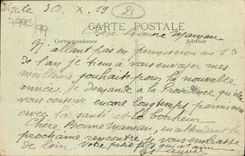 le 30. X. 19
(2)
7995/99
CARTE POSTALE
Correspondance Adresse
Chère Bonne Maman
N'allant pas en permission au 1er
de l'an je tiens à vous envoyer mes
meilleurs souhaits pour la nouvelle
année. Je demande à la Providence qu'elle
vous conserve encore longtemps parmi nous
avec la santé et le bonheur
Chère Bonne Maman, en attendant la
prochaine rencontre je vous embrasse
de loin. Votre petit fils qui